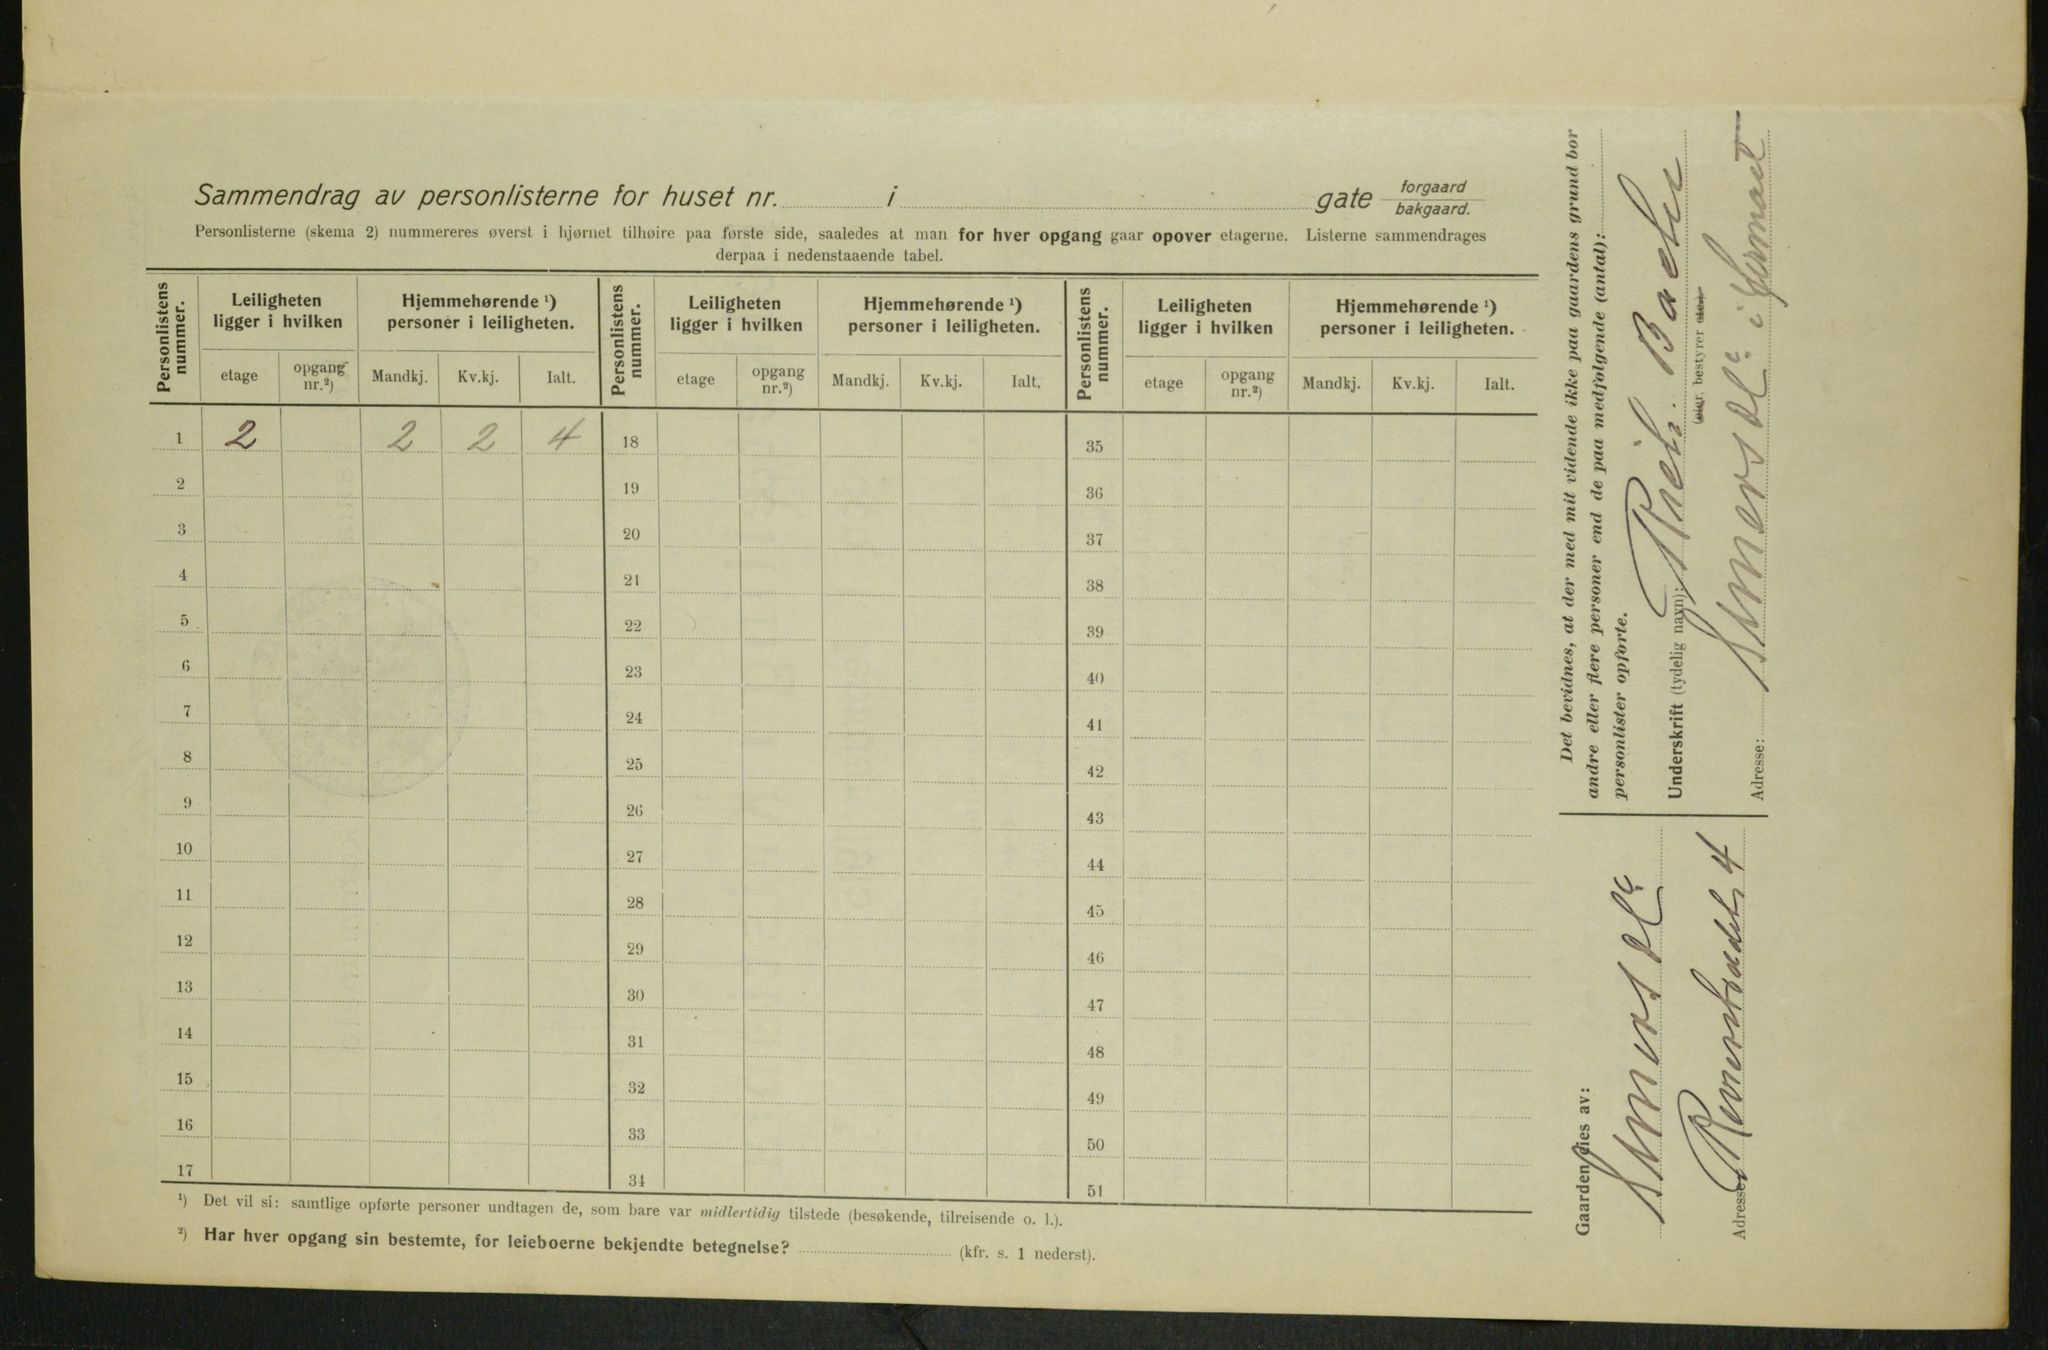 Sammendrag av personlisterne for huset nr. i gate forgaard bakgaard.
Personlisterne (skema 2) nummereres øverst i hjørnet tilhøire paa første side, saaledes at man for hver opgang gaar opover etagerne. Listerne sammendrages
derpaa i nedenstaaende tabel.
Personlistens nummer. Leiligheten ligger i hvilken Hjemmehørende ¹) personer i leiligheten. Personlistens nummer. Leiligheten ligger i hvilken Hjemmehørende ¹) personer i leiligheten. Personlistens nummer. Leiligheten ligger i hvilken Hjemmehørende ¹) personer i leiligheten.
etage opgang nr.²) Mandkj. Kv.kj. Ialt. etage opgang nr.²) Mandkj. Kv.kj. Ialt. etage opgang nr.²) Mandkj. Kv.kj. Ialt.
1 2 2 2 4 18 35
2 19 36
3 20 37
4 21 38
5 22 39
6 23 40
7 24 41
8 25 42
9 26 43
10 27 44
11 28 45
12 29 46
13 30 47
14 31 48
15 32 49
16 33 50
17 34 51
¹) Det vil si: samtlige opførte personer undtagen de, som bare var midlertidig tilstede (besøkende, tilreisende o. l.).
²) Har hver opgang sin bestemte, for leieboerne bekjendte betegnelse? (kfr. s. 1 nederst).
Det bevidnes, at der med mit vidende ikke paa gaardens grund bor
andre eller flere personer end de paa medfølgende (antal):
personlister opførte.
Underskrift (tydelig navn):
(eier, bestyrer etc.)
Adresse: i
Gaarden eies av:
Adresse: 4